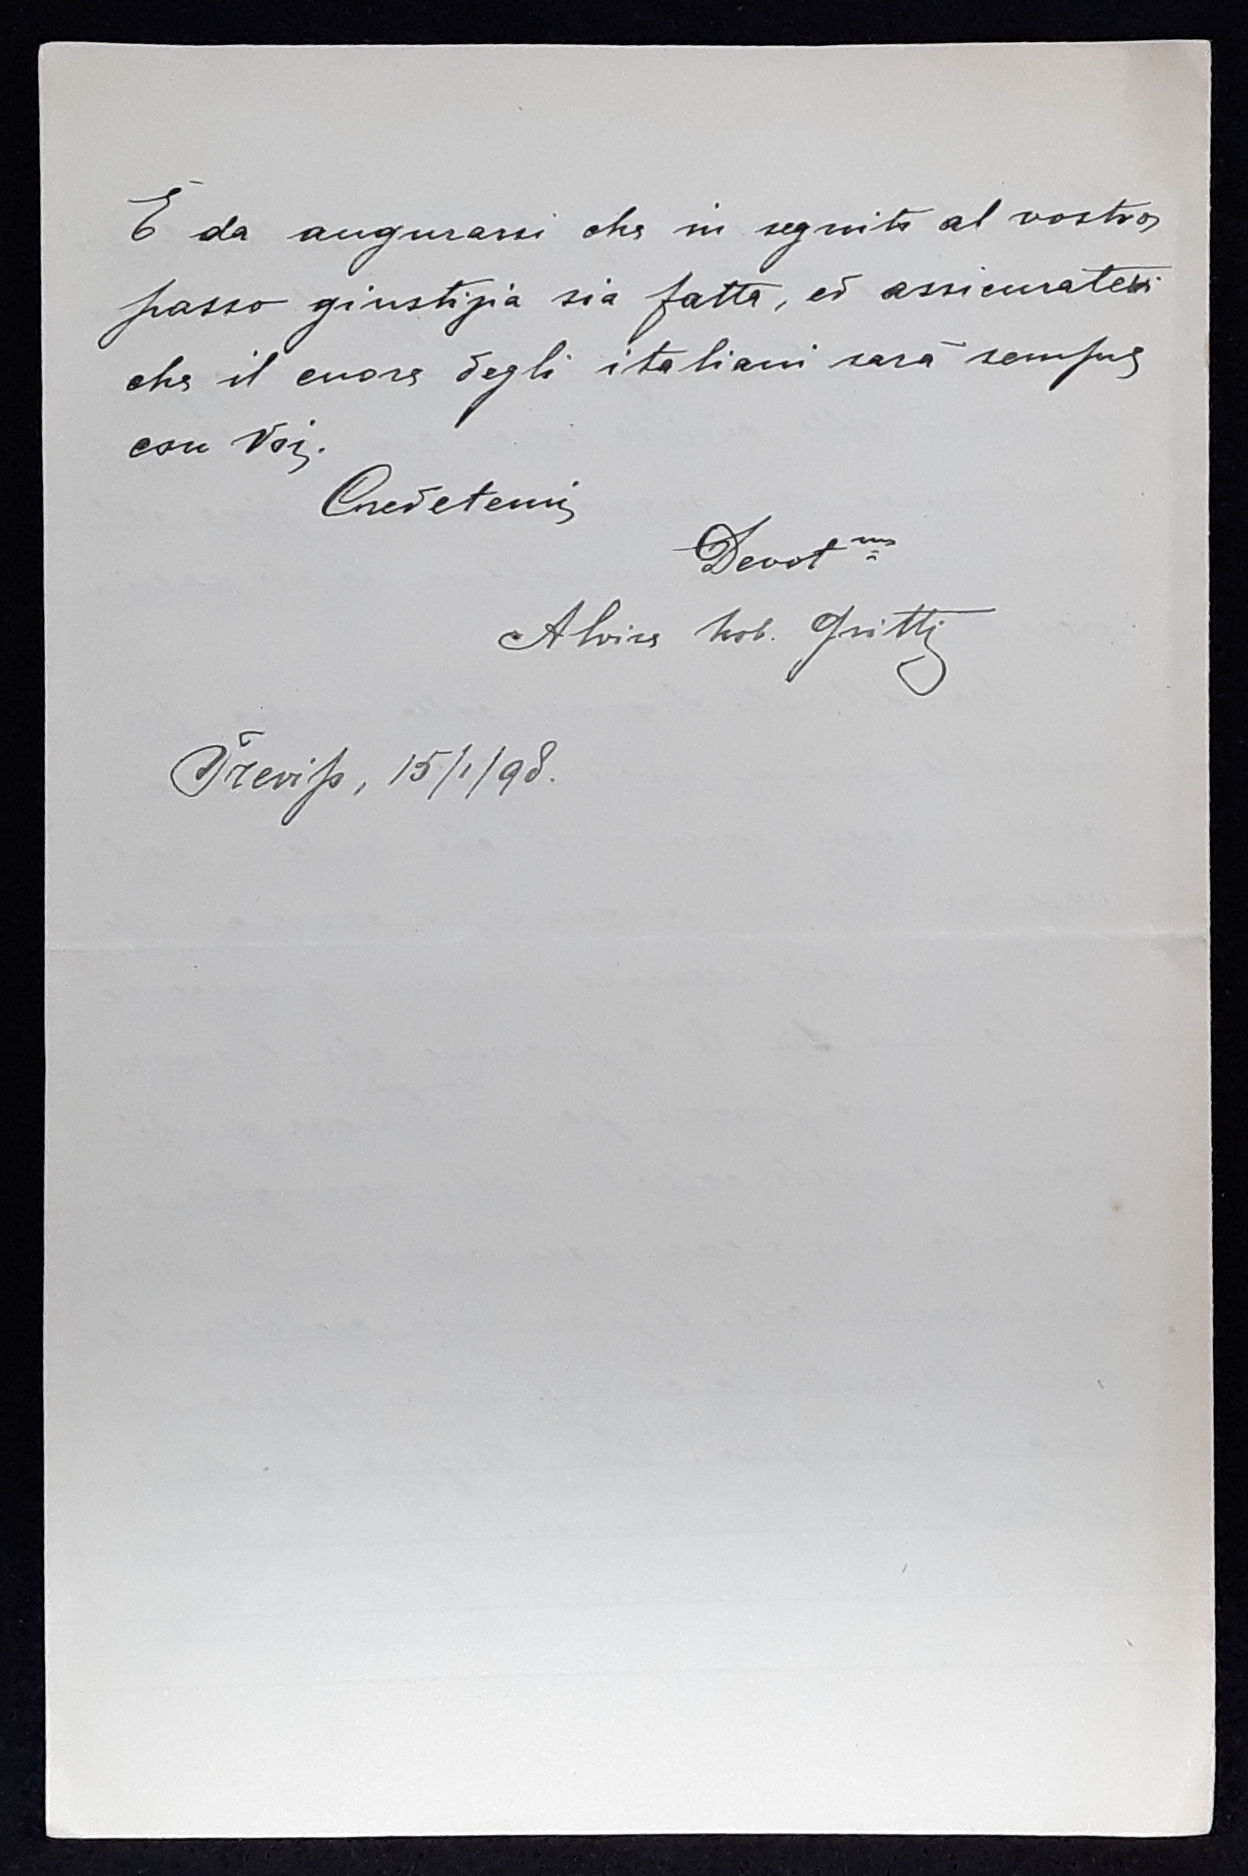 È da augurarsi che in seguito al vostro
passo giustizia sia fatta, ed assicuratevi
che il cuore degli italiani sarà sempre
con Voi.
Credetemi
Devot mo
Alvise nob. Gritti
Treviso, 15/1/98.